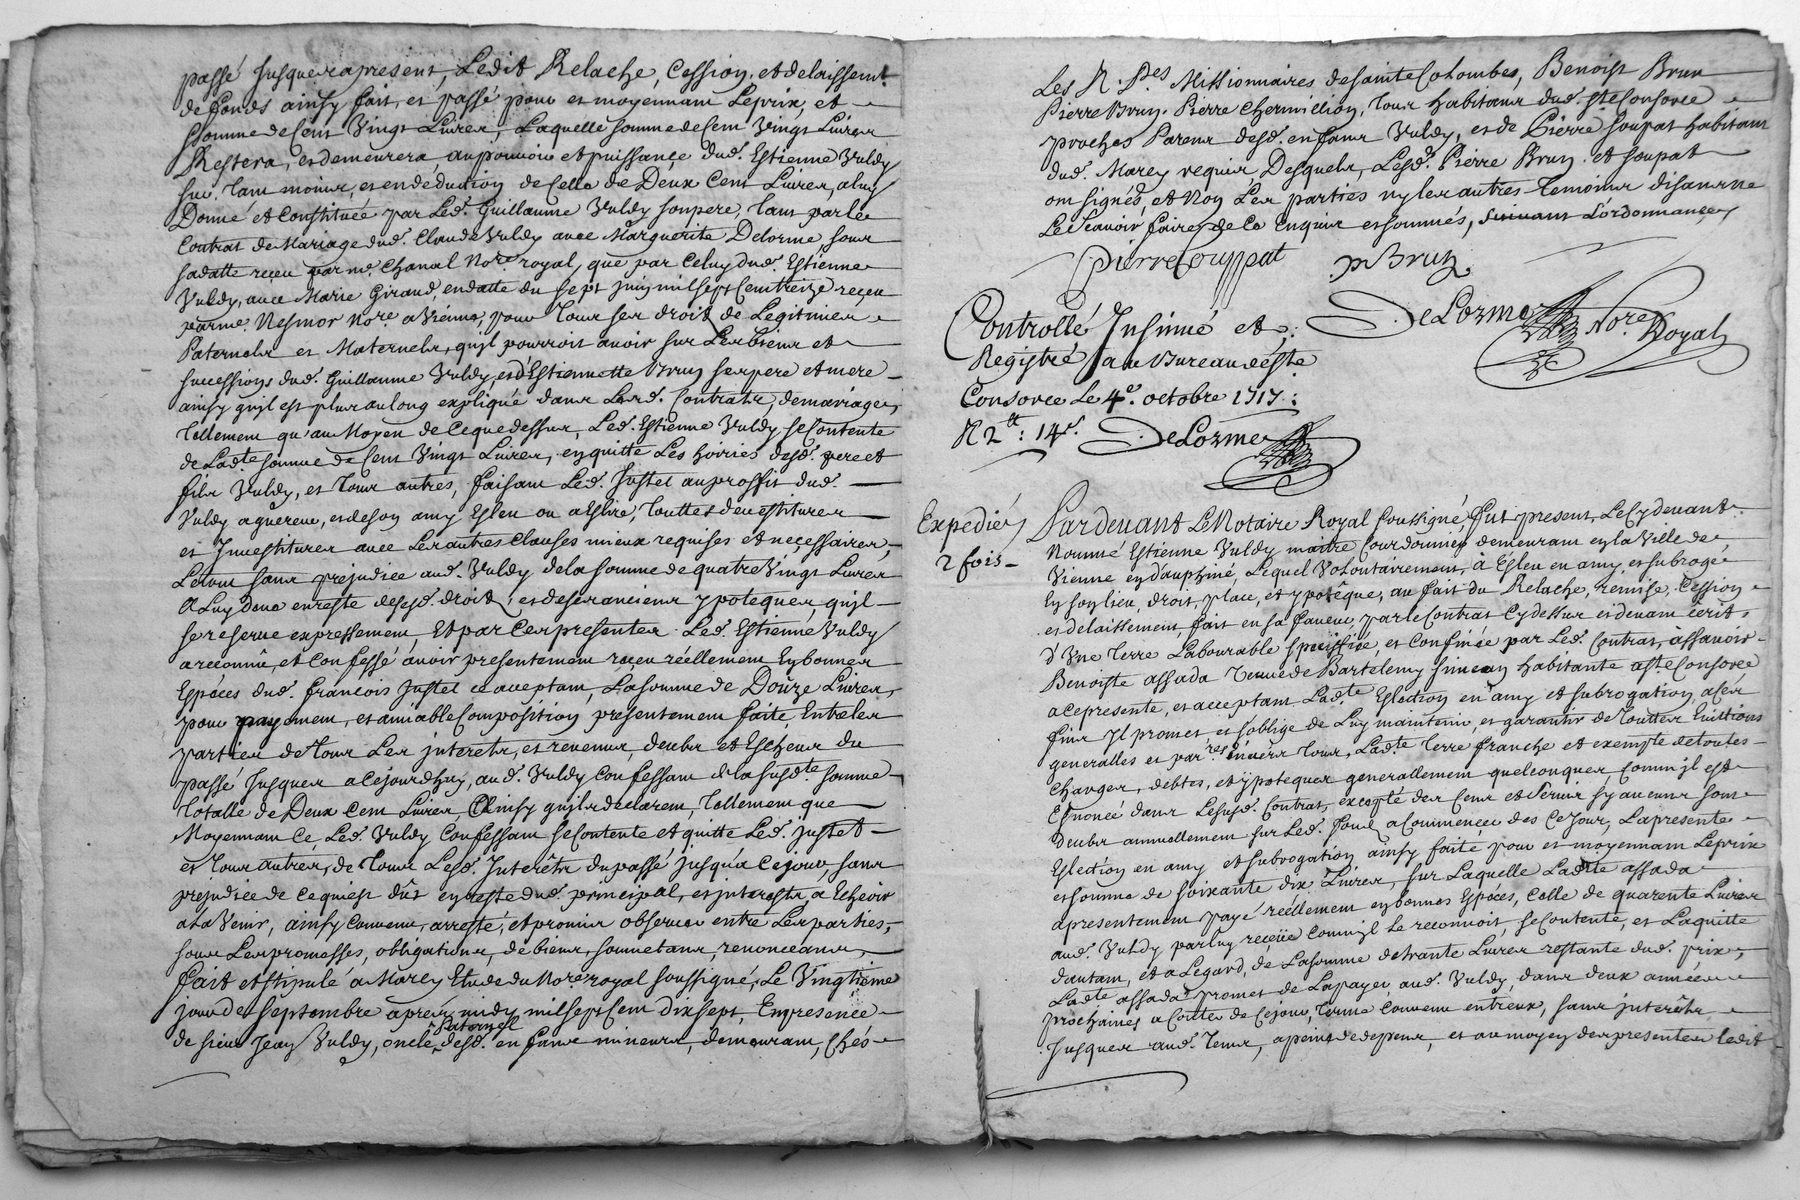 passé jusques apresent, Ledit Relache, Cession, et delaissemt
de fonds ainsy fait, et passé pour et moyennant Leprix, et
Somme de Cent Vingt Livres, Laquelle somme de Cent Vingt Livres
Restera, et demeurera au pouvoir et puissance dud. Estienne Vuldy
sur, tant moins, et en deduction de Celle de Deux Cent Livres, a luy
Donné et Constituée par Led. Guillaume Vuldy son pere, tant par le
Contrat de Mariage dud. Claude Vuldy avec Marguerite Delorme sous
sa datte receu par me. Chanal Nore. royal, que par Celuy dud. Estienne
Vuldy, avec Marie Giraud, en datte du sept juin mil sept cent treize receu
par me. Nesmoz Nore. a Vienne, pour tous ses droits de Legitimes
Paternels et Maternels, qu'il pourroit avoir sur Les biens et
successions dud. Guillaume Vuldy, et d'Estiennette Brun ses pere et mere
ainsy qu'il est plus au long expliqué dans Lesd. Contrats, de mariage,
tellement qu'au Moyen de Ceque dessus, Led. Estienne Vuldy, se Contente
de Ladte somme de Cent Vingt Livres, en quitte Les hoiries desd. pere et
fils Vuldy, et tous autres, faisant Led. Justet au proffit dud.
Vuldy aquereur, et de son amy Esleu ou a Eslire, touttes devestitures
et Investitures avec Les autres Clauses mieux requises et necessaires,
Le tout sans prejudice aud. Vuldy de la somme de quatre Vingt Livres
A Luy deue en reste de sesd. droits, et de ses anciens ypoteques, qu'il
se reserve expressement, Et par Ces presentes Led. Estienne Vuldy
a reconnu, et Confessé avoir presentement receu réellement En bonnes
Espéces dud. francois Justet ce acceptant, La somme de Doûze Livres,
pour payement, et amiable Composition presentement faite Entre les
parties de tous Les interets, et revenus, deubs et Escheus du
passé Jusques a cejourdhuy, aud. Vuldy Confessant de la susdte somme
totalle de Deux cent Livres, Ainsy qu'ils declarent, tellement que
Moyennant Ce, Led. Vuldy Confessant se Contente et quitte Led. justet
et tous autres, de tous Lesd. Interêts du passé jusqu'a Ce jour, sans
prejudice de ce qui est dût en reste dud. principal, et interests, a Escheoir
a La Venir, ainsy Convenu, arresté, et promis observer entre Les parties,
sous Les promesses, obligations, de biens, soumissions, renonceans,
Fait et stipulé a Marey Etude du Nore royal soussigné, Le Vingtième
jour de septembre apres midy mil sept Cent dix sept, En presence
de sieur Jean Vuldy, oncle Paternel desd. enfans mineurs, demeurant, Chés
Les R. Pes. Missionnaires de sainte Colombes, Benoist Brun
Pierre Brun, Pierre Chermillion, tous habitans dud. Ste Consorce
proches Parens desd. enfans Vuldy, et de Pierre Soupat habitant
dud. Marey requis Desquels, Lesd. Pierre Brun, et soupat
ont signés, et Non Les parties ny les autres temoins disant ne
Le Scavoir faire de Ce Enquis et sommés, suivant L'ordonnance
Pierre Couppat p Brun
DeLorme Nore. Royal
Controllé Insinué et
Registré au Bureau de Ste
Consorce Le 4e. octobre 1717:
R 2tt: 14s. DeLorme
Expediés
2 fois
Pardevant Le Notaire Royal soussigné, fut present, Le Cydevant
Nommé Estienne Vuldy maitre Courdonnier demeurant en la Ville de
Vienne en dauphiné, Lequel Volontairement, à Esleu en amy, et subrogé
En son lieu, droit, place, et ypotêque, au fait du Relache, remise, Cession
et delaissement, fait en sa faveur, par le Contrat Cy dessus et devant écrit,
d'Une terre Labourable speciffiée, et Confinée par Led. Contrat, à Sçavoir
Benoiste assada Veuve de Bartelemy simean habitante a Ste Consorce
a ce presente, et acceptant Ladte Eslection en amy et subrogation, a Ces
fins Il promet, et s'oblige de Luy maintenir, et garantir de touttes Evictions
generalles et parres. Envers tous, Ladte terre franche et exempte de toutes
Charges, debtes, et ypoteques generallement quelconques Comm'il est
Esnoncé dans Le susd. Contrat, excepté des Cens et Servis sy aucuns sont
deubs annuellement sur Led. fond, a Commencer des Ce Jour, La presente
Eslection en amy et subrogation ainsy faite pour et moyennant Le prix
et somme de soixante dix Livres, sur Laquelle Ladte assada
a presentement payé réellement en bonnes Espéces, Celle de quarente Livres
aud. Vuldy par luy receüe Comm'il Le reconnoit, se Contente, et La quitte
d'autant, et a Legard, de La somme de trante Livres restante dud. prix,
Ladte assada promet de La payer, aud. Vuldy, dans deux années
prochaines a Conter de Ce jour, terme Convenu entreux, sans interêts
Jusques aud. tems, a peine de depens, et au moyen des presentes ledit